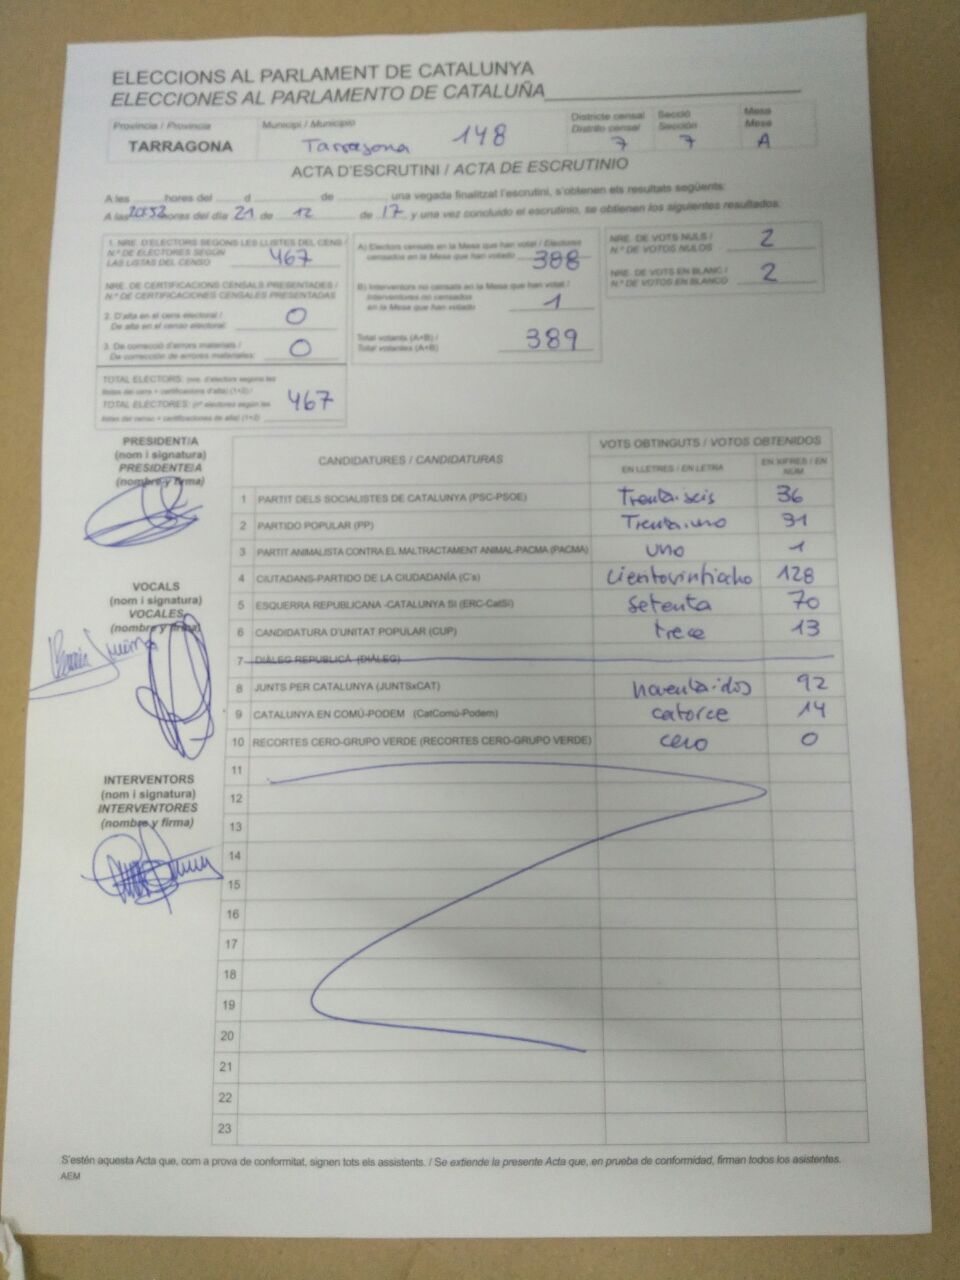 ELECCIONS AL PARLAMENT DE CATALUNYA
ELECCIONES AL PARLAMENTO DE CATALUÑA
Provincia / Provincia Municipi / Municipio Districte censal Secció Mesa
Distrito censal Sección Mesa
TARRAGONA Tarragona 148 7 7 A
ACTA D'ESCRUTINI / ACTA DE ESCRUTINIO
A les hores del d de una vegada finalitzat l'escrutini, s'obtenen els resultats següents:
A las horas del día 21 de 12 de 17 y una vez concluido el escrutinio, se obtienen los siguientes resultados:
1. NRE. D'ELECTORS SEGONS LES LLISTES DEL CENS /
N.º DE ELECTORES SEGÚN
LAS LISTAS DEL CENSO 467
NRE. DE CERTIFICACIONS CENSALS PRESENTADES /
N.º DE CERTIFICACIONES CENSALES PRESENTADAS
2. D'alta en el cens electoral /
De alta en el censo electoral: 0
3. De correcció d'errors materials /
De corrección de errores materiales: 0
TOTAL ELECTORS: (nre. d'electors segons les
llistes del cens + certificacions d'alta) (1+2) /
TOTAL ELECTORES: (nº electores según las
listas del censo + certificaciones de alta) (1+2) 467
A) Electors censats en la Mesa que han votat / Electores
censados en la Mesa que han votado 388
B) Interventors no censats en la Mesa que han votat /
Interventores no censados
en la Mesa que han votado 1
Total votants (A+B) /
Total votantes (A+B) 389
NRE. DE VOTS NULS /
N.º DE VOTOS NULOS 2
NRE. DE VOTS EN BLANC /
N.º DE VOTOS EN BLANCO 2
PRESIDENT/A
(nom i signatura)
PRESIDENTE/A
(nombre y firma)
VOCALS
(nom i signatura)
VOCALES
(nombre y firma)
INTERVENTORS
(nom i signatura)
INTERVENTORES
(nombre y firma)
CANDIDATURES / CANDIDATURAS VOTS OBTINGUTS / VOTOS OBTENIDOS
EN LLETRES / EN LETRA EN XIFRES / EN NÚM
1 PARTIT DELS SOCIALISTES DE CATALUNYA (PSC-PSOE) Trentaiseis 36
2 PARTIDO POPULAR (PP) Trentaiuno 31
3 PARTIT ANIMALISTA CONTRA EL MALTRACTAMENT ANIMAL-PACMA (PACMA) uno 1
4 CIUTADANS-PARTIDO DE LA CIUDADANÍA (C's) Cientovintiocho 128
5 ESQUERRA REPUBLICANA -CATALUNYA SÍ (ERC-CatSí) Setenta 70
6 CANDIDATURA D'UNITAT POPULAR (CUP) trece 13
7 DIÀLEG REPUBLICÀ (DIÀLEG)
8 JUNTS PER CATALUNYA (JUNTSxCAT) noventaidos 92
9 CATALUNYA EN COMÚ-PODEM (CatComú-Podem) catorce 14
10 RECORTES CERO-GRUPO VERDE (RECORTES CERO-GRUPO VERDE) cero 0
11
12
13
14
15
16
17
18
19
20
21
22
23
S'estén aquesta Acta que, com a prova de conformitat, signen tots els assistents. / Se extiende la presente Acta que, en prueba de conformidad, firman todos los asistentes.
AEM